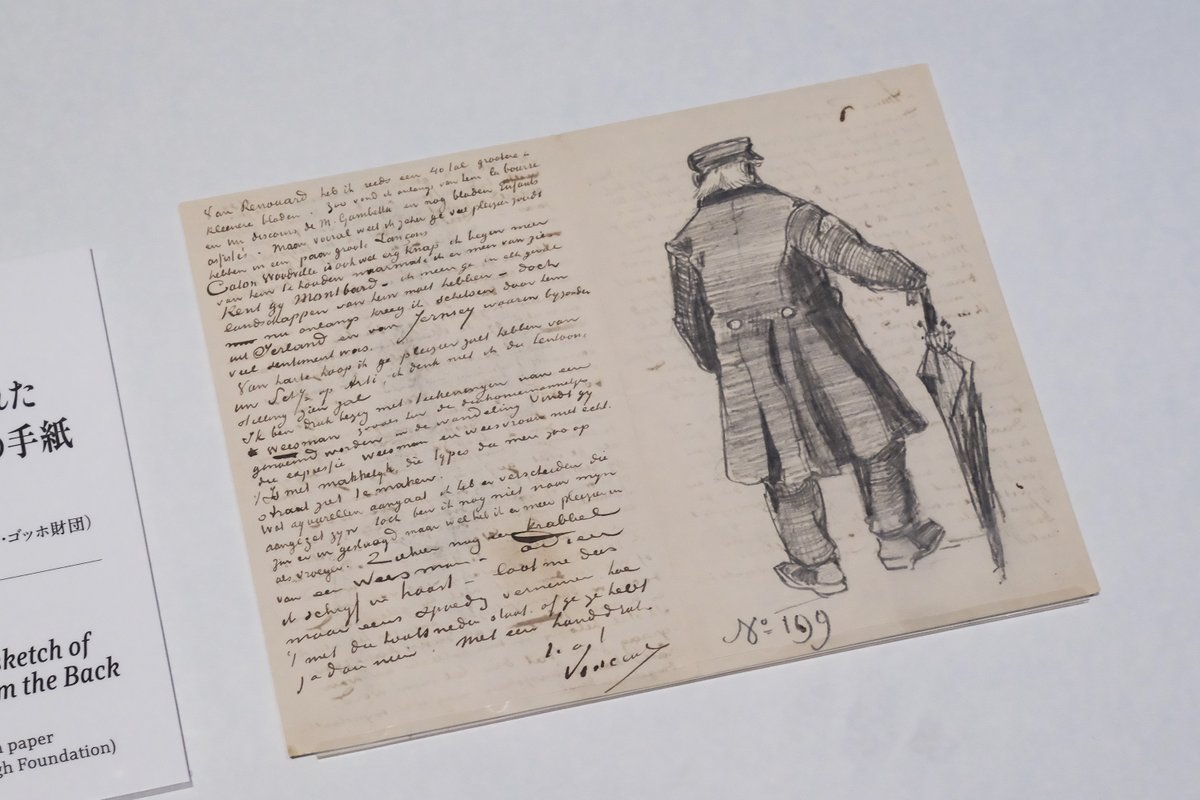 Van Renouard heb ik reeds een 40 tal grootere &
kleinere bladen. Zoo vond ik onlangs van hem la bourse
en un discours de M. Gambetta en nog bladen Enfants
assistés. Maar vooral weet ik zeker ge veel pleizier zoudt
hebben in een paar groote Lançons
Caton Woodville is ook wel erg knap ik begin meer
van hem te houden naarmate ik er meer van zie
Kent gy Montbard – ik meen ge in elk geval
landschappen van hem moet hebben – doch
nu onlangs kreeg ik schetsen door hem
uit Ierland en van Jersey waarin byzonder
veel sentiment was.
Van harte hoop ik ge pleizier zult hebben van
Uw op Arti, ik denk met ik die tentoon-
stelling zien zal
Ik ben druk bezig met teekeningen van een
weesman zooals hier de diakoniemannetjes
genoemd worden in de wandeling Vindt gy
die expressie weesman en weesvrouw niet echt.
't Is niet makkelyk die types die men zoo op
straat ziet te maken.
Wat aquarellen aangaat ik heb er verscheiden die
aangezet zyn doch ben ik nog niet naar myn
zin er in geslaagd maar wel heb ik er meer pleizier in
als vroeger. Ziehier nog een krabbel
van een Weesman – adieu
ik schryf in haast – laat me dus
maar eens spoedig vernemen hoe
't met die houtsneden staat. of ge ze hebt
ja dan neen. Met een handdruk.
t. à t.
Vincent
Nº 199
れた
の手紙
・ゴッホ財団)
sketch of
m the Back
paper
gh Foundation)